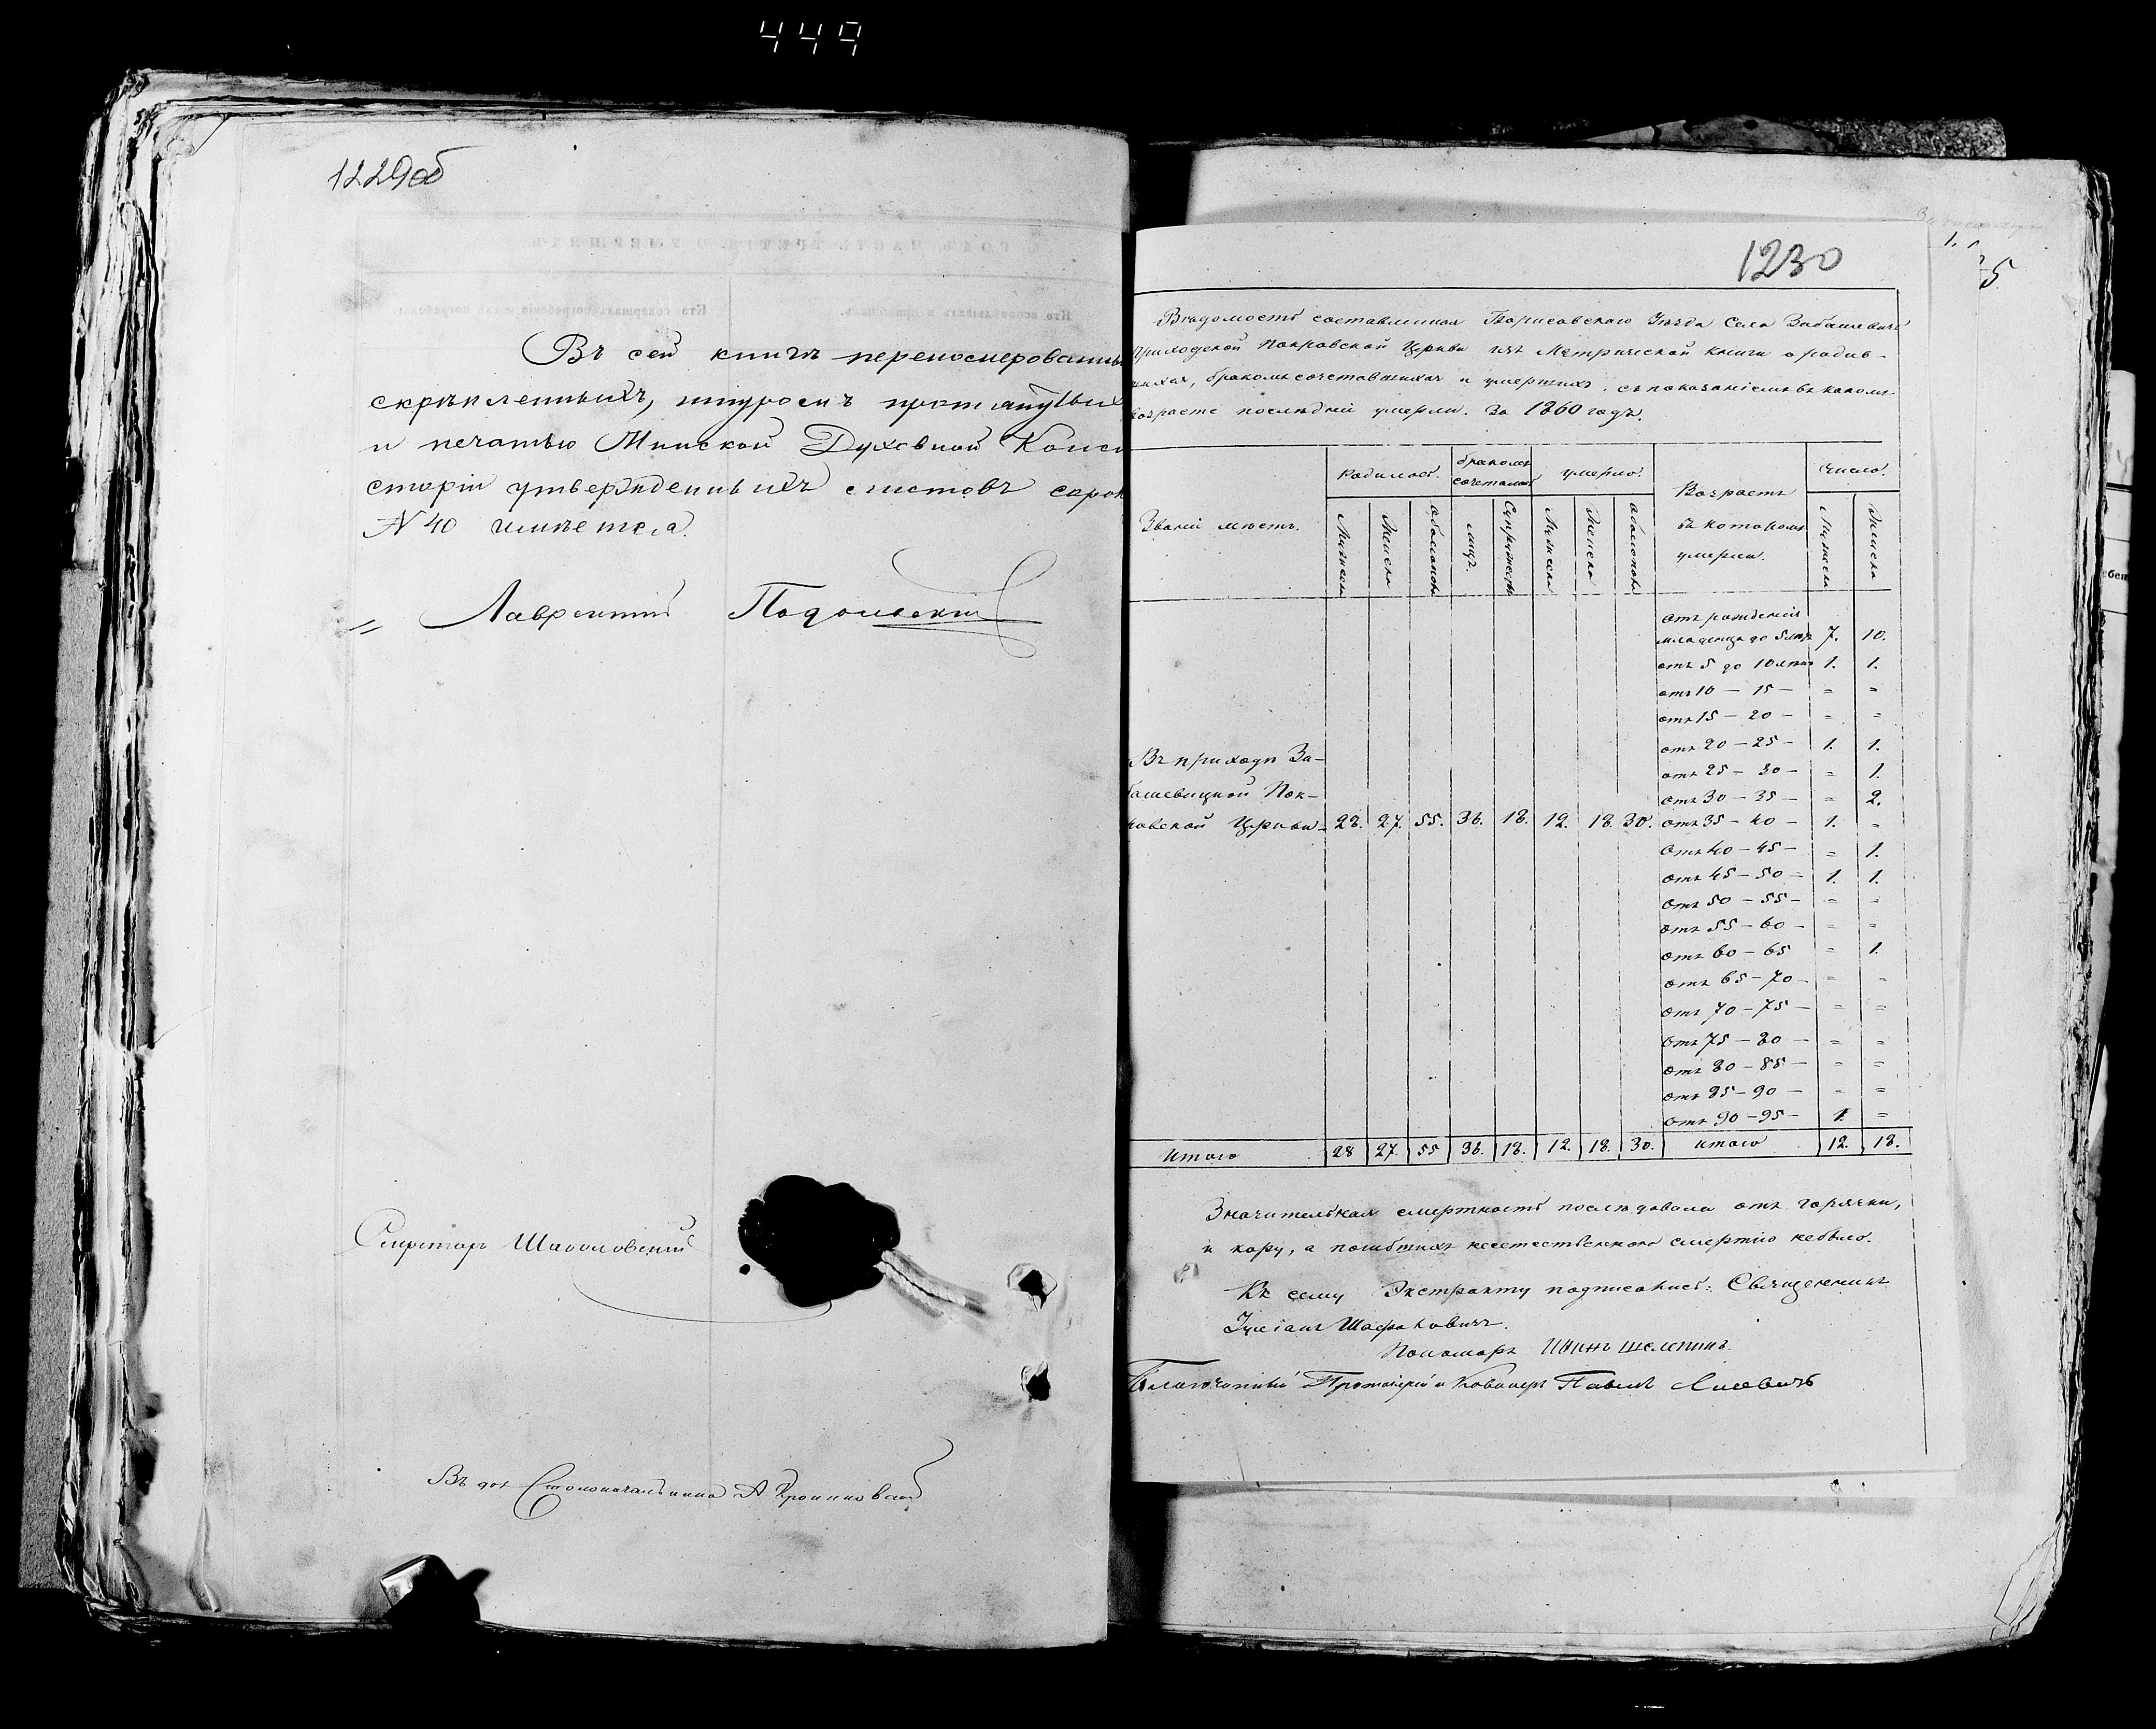 449
1229об
Въ сей книгѣ перепомерованны
скрѣпленныхъ, шнуромъ протянутых
и печатью Минской Духовной Конси
сторіи утвержденныхъ листовъ сорок
N 40 имѣется.
Лаврентій Подольскій
Секретарь
Въ дол Столоначальника А
1230
5
Вѣдомость составленная Борисовскаго Уѣзда Села Забашевичь
приходской Покровской Церкви изъ Метрической книги о родив-
шихся, бракомъ сочетавшихся и умершихъ, съ показаніемъ въ каком
возрастѣ послѣдніи умерли. За 1860 годъ.
Званіи мѣстъ. Родилось. бракомъ сочеталось умерло. Возрастъ въ которомъ умерли. Число.
Мужеска Женска Обоихъ лицъ. Супружествъ Мужеска Женска Обоихъ Мужеска Женска
отъ рожденія
младенца до 5 лѣтъ 7. 10.
отъ 5 до 10 лѣтъ 1. 1.
отъ 10 — 15 — = =
отъ 15 — 20 — = =
отъ 20 — 25 — 1. 1.
отъ 25 — 30 — = 1.
отъ 30 — 35 — = 2.
отъ 35 — 40 — 1. =
отъ 40 — 45 — = 1.
отъ 45 — 50 — 1. 1.
отъ 50 — 55 — = =
отъ 55 — 60 — = =
отъ 60 — 65 = 1.
отъ 65 — 70 — = =
отъ 70 — 75 — = =
отъ 75 — 80 — = =
отъ 80 — 85 — = =
отъ 85 — 90 — = =
отъ 90 — 95 — 1. =
Въ приходѣ За-
башевицкой Пок-
ровской Церкви 28. 27. 55. 36. 18. 12. 18. 30.
Итого 28 27. 55 36. 18. 12. 18. 30. итого 12. 18.
Значительная смертность послѣдовала отъ горячки,
и кору, а погибшихъ неестественною смертію небыло.
Къ сему Экстракту подписались: Священникъ
Іуліанъ Шафаловичъ.
Пономарь Шелепинъ.
Благочинный Протоіерей и Кавалеръ Павелъ Лисевичъ